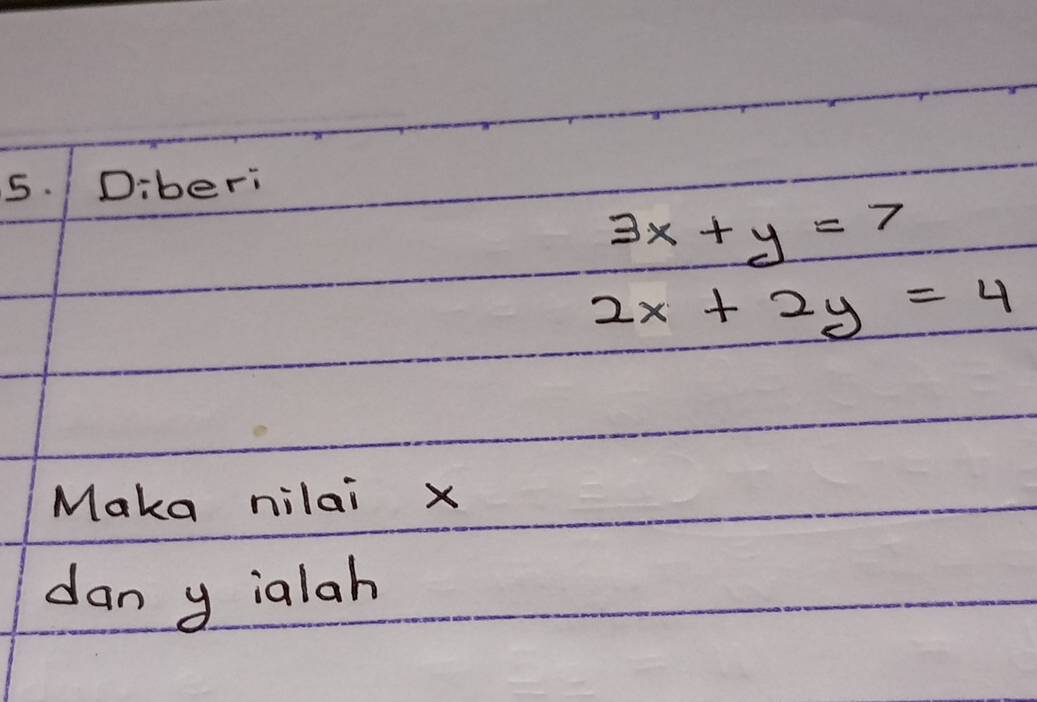 5. Diberi
3x + y = 7
2x + 2y = 4
Maka nilai x
dan y ialah